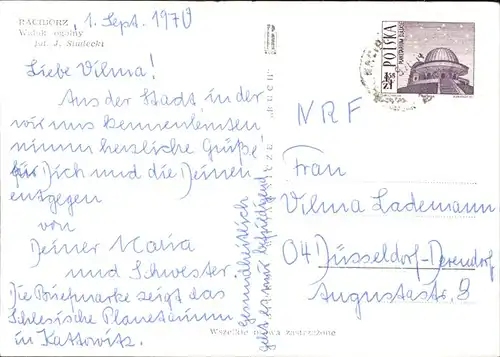 RACIBÓRZ
Widok ogólny
fot. J. Siudecki
1. Sept. 1970
Liebe Vilma!
Aus der Stadt in der
wir uns kennenlernten
nimm herzliche Grüße
für Dich und die Deinen
entgegen
von
Deiner Maria
und Schwester.
Die Briefmarke zeigt das
Schlesische Planetarium
in Kattowitz.
gesundheitlich
geht es nur befriedigend
RUCH
POLSKA
NRF
Frau
Vilma Lademann
04 Düsseldorf-Derendorf
Augustastr. 8
Wszelkie prawa zastrzeżone